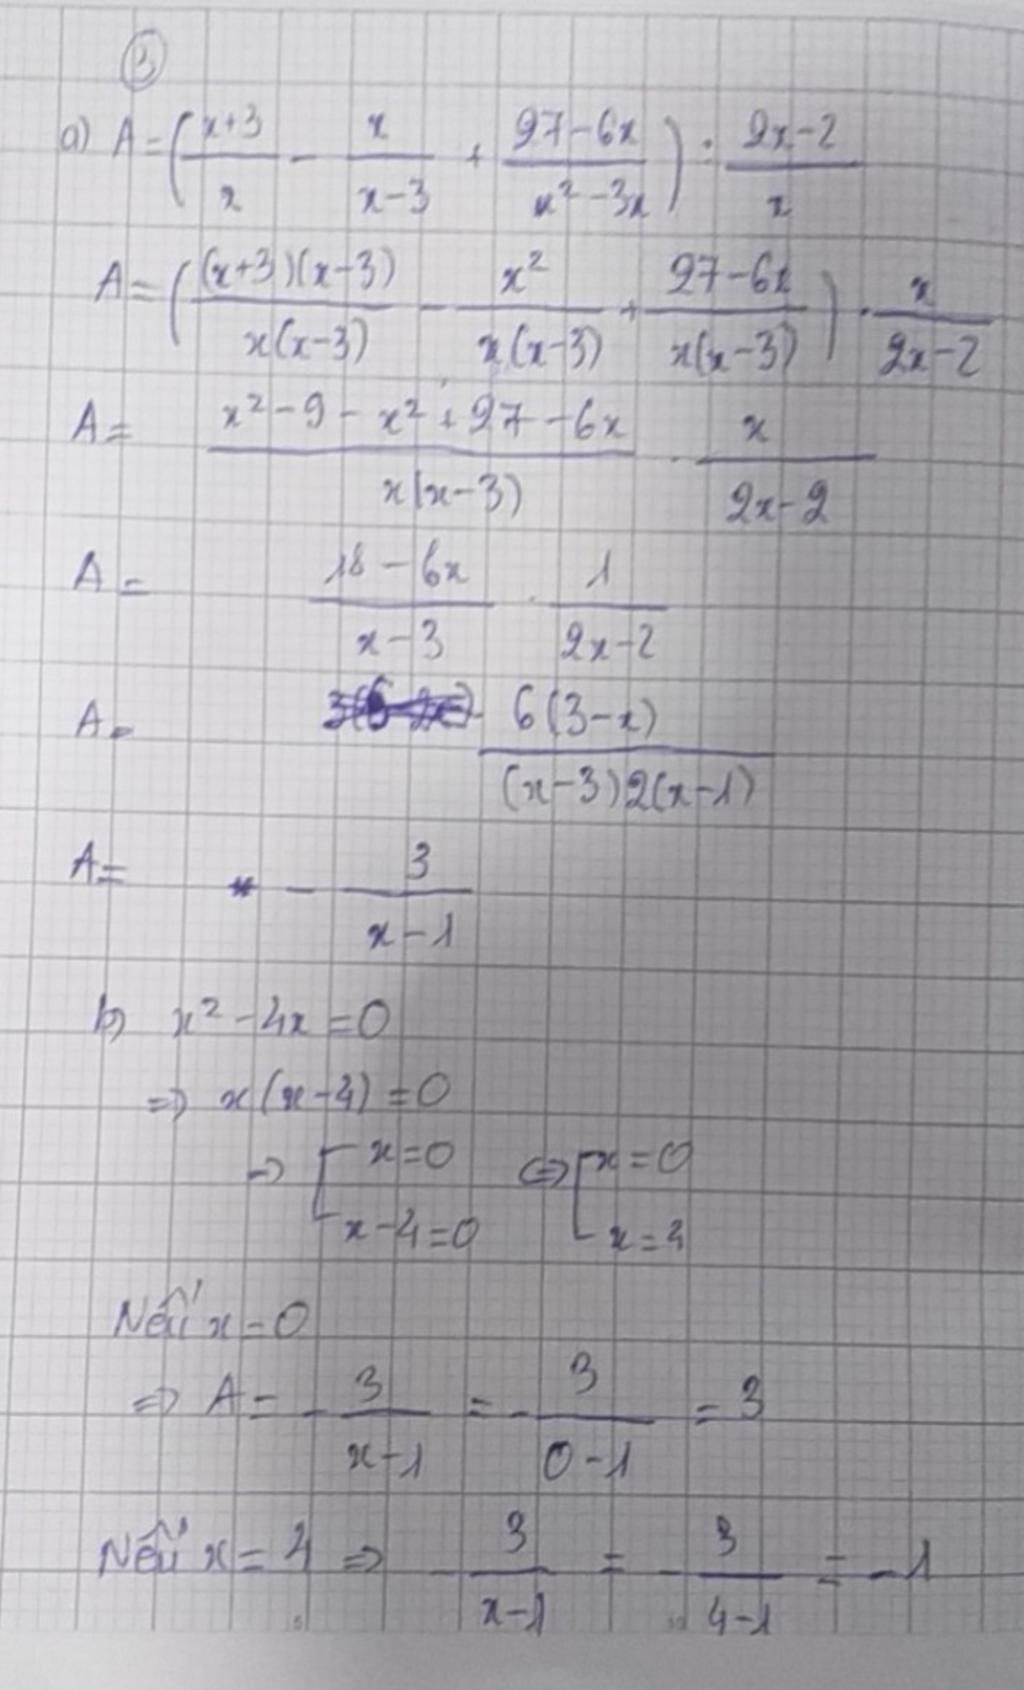 3
a) A = ( (x+3)/x - x/(x-3) + (27-6x)/(x²-3x) ) : (2x-2)/x
A = ( (x+3)(x-3)/x(x-3) - x²/x(x-3) + (27-6x)/x(x-3) ) . x/(2x-2)
A = (x²-9-x²+27-6x)/x(x-3) . x/(2x-2)
A = (18-6x)/(x-3) . 1/(2x-2)
A = 6(3-x)/(x-3)2(x-1)
A = - 3/(x-1)
b) x²-4x=0
=> x(x-4)=0
=> [ x=0 <=> [ x=0
x-4=0 x=4
Nếu x=0
=> A = - 3/(x-1) = - 3/(0-1) = 3
Nếu x=4 => - 3/(x-1) = - 3/(4-1) = -1